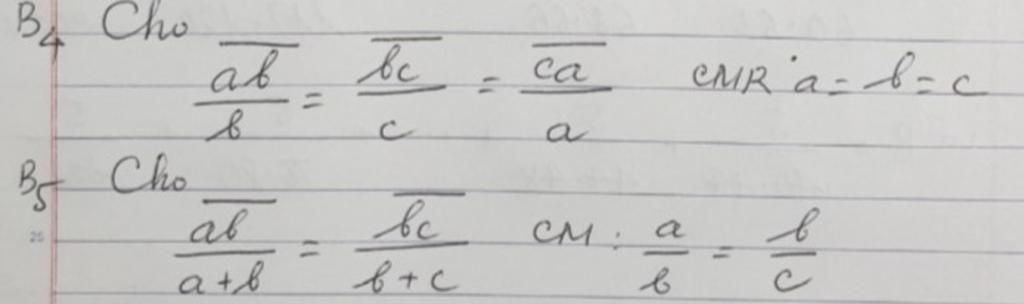 B4 Cho
$\frac{\overline{ab}}{b} = \frac{\overline{bc}}{c} = \frac{\overline{ca}}{a}$ CMR a = b = c
B5 Cho
$\frac{\overline{ab}}{a+b} = \frac{\overline{bc}}{b+c}$ CM : $\frac{a}{b} = \frac{b}{c}$